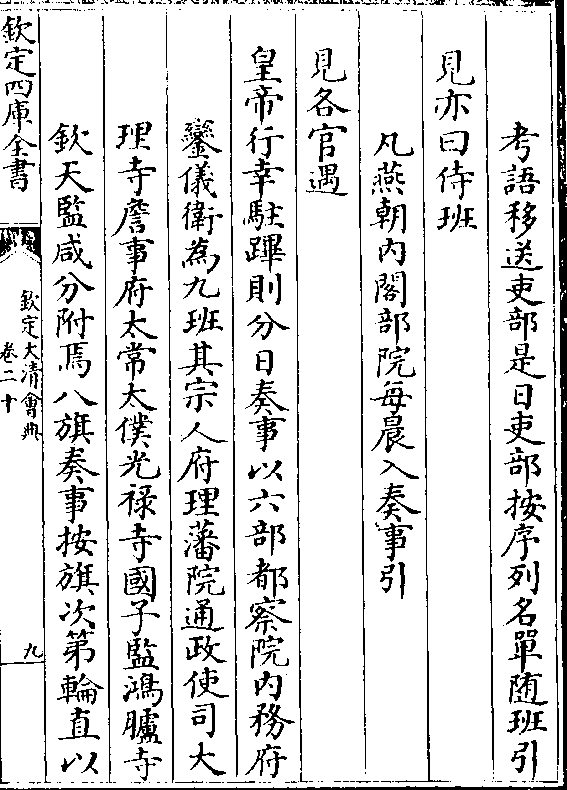 考語移送吏部是日吏部按序列名單随班引
見亦曰侍班
凡燕朝内閣部院每晨入奏事引
見各官遇
皇帝行幸駐蹕則分日奏事以六部都察院内務府
鑾儀衛為九班其宗人府理藩院通政使司大
理寺詹事府太常太僕光禄寺國子監鴻臚寺
欽天監咸分附焉八旗奏事按旗次第輪直以
欽定四庫全書
欽定大清會典
卷二十
九